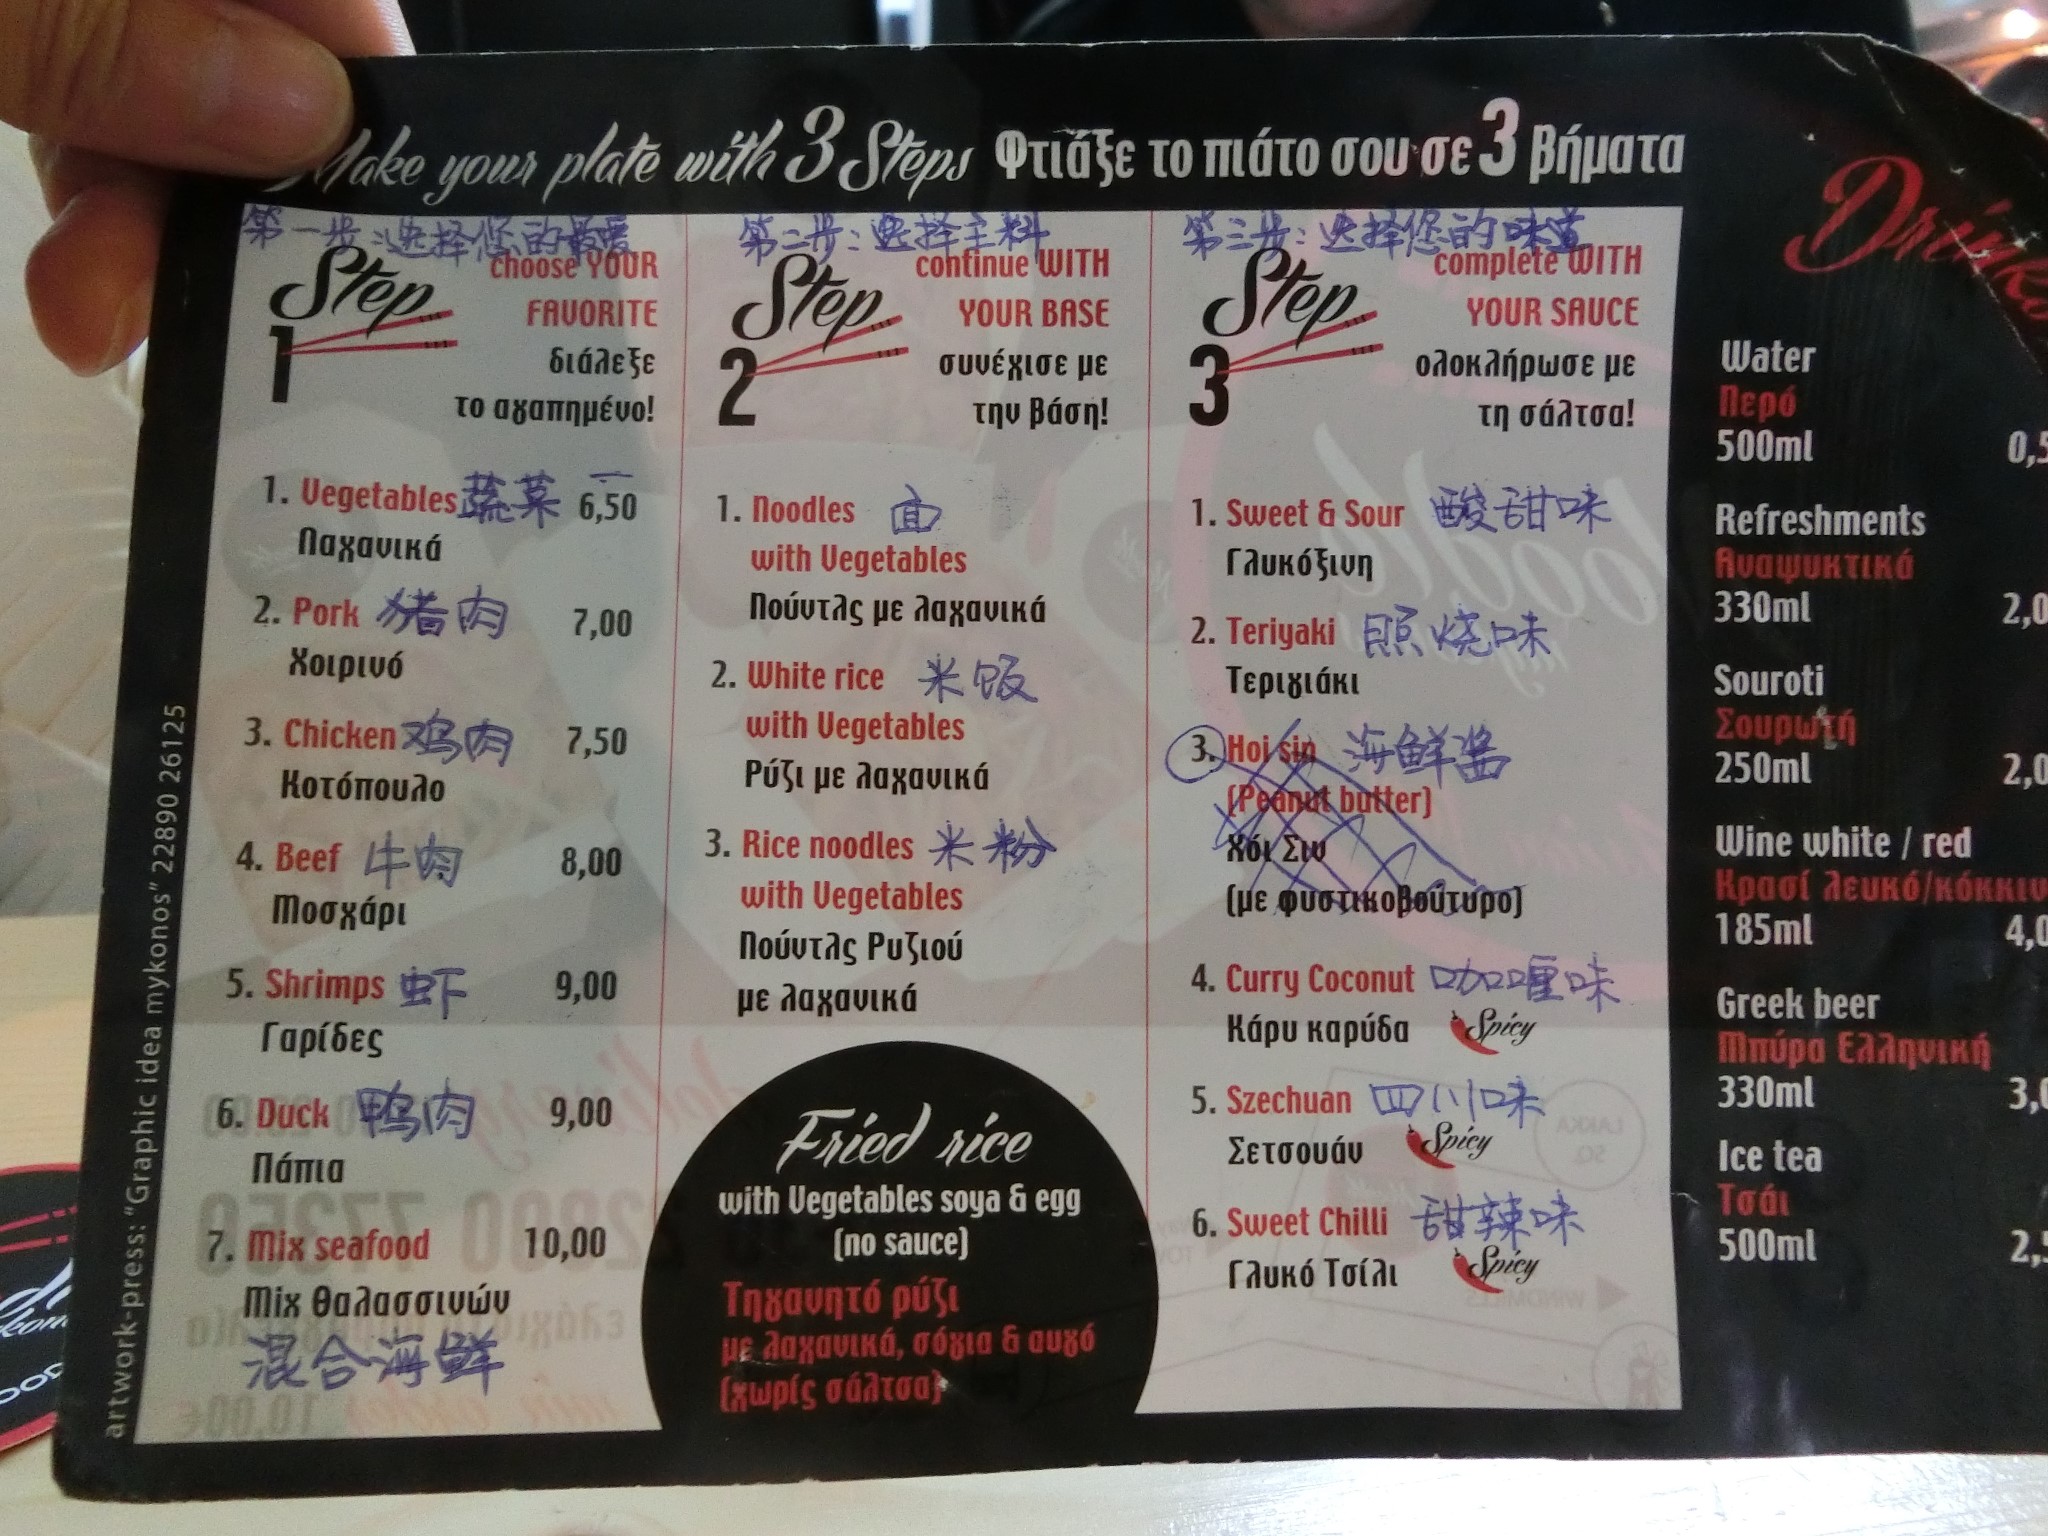 Make your plate with 3 Steps Φτιάξε το πιάτο σου σε 3 βήματα
第一步:选择您的最爱
Step 1
choose YOUR
FAVORITE
διάλεξε
το αγαπημένο!
1. Vegetables 蔬菜 6,50
Λαχανικά
2. Pork 猪肉 7,00
Χοιρινό
3. Chicken 鸡肉 7,50
Κοτόπουλο
4. Beef 牛肉 8,00
Μοσχάρι
5. Shrimps 虾 9,00
Γαρίδες
6. Duck 鸭肉 9,00
Πάπια
7. Mix seafood 10,00
Μix θαλασσινών
混合海鲜
第二步:选择主料
Step 2
continue WITH
YOUR BASE
συνέχισε με
την βάση!
1. Noodles 面
with Vegetables
Νούντλς με λαχανικά
2. White rice 米饭
with Vegetables
Ρύζι με λαχανικά
3. Rice noodles 米粉
with Vegetables
Νούντλς Ρυζιού
με λαχανικά
Fried rice
with Vegetables soya & egg
(no sauce)
Τηγανητό ρύζι
με λαχανικά, σόγια & αυγό
(χωρίς σάλτσα)
第三步:选择您的味道
Step 3
complete WITH
YOUR SAUCE
ολοκλήρωσε με
τη σάλτσα!
1. Sweet & Sour 酸甜味
Γλυκόξινη
2. Teriyaki 照烧味
Τεριγιάκι
3. Hoi sin 海鲜酱
(Peanut butter)
Χόι Σιν
(με φυστικοβούτυρο)
4. Curry Coconut 咖喱味
Κάρυ καρύδα Spicy
5. Szechuan 四川味
Σετσουάν Spicy
6. Sweet Chilli 甜辣味
Γλυκό Τσίλι Spicy
Drinks
Water
Νερό
500ml 0,5
Refreshments
Αναψυκτικά
330ml 2,0
Souroti
Σουρωτή
250ml 2,0
Wine white / red
Κρασί λευκό/κόκκιν
185ml 4,0
Greek beer
Μπύρα Ελληνική
330ml 3,0
Ice tea
Τσάι
500ml 2,5
artwork-press: "Graphic idea mykonos" 22890 26125